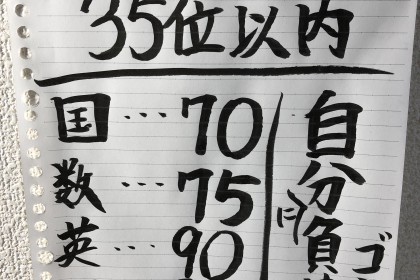 35位以内
国…70
数…75
英…90
自分に負
ゴ